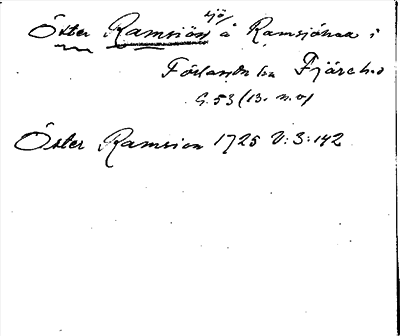 sjö
Öster Ramsiön å Ramsjönaa i
Förlanda sn Fjäre h.d
G.53 (13. n.v)
Öster Ramsion 1725 V:3:142